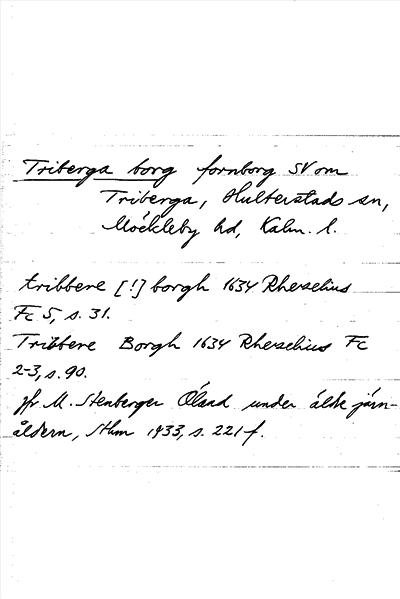 Triberga borg fornborg SV om
Triberga, Hulterstads sn,
Möckleby hd, Kalm. l.
tribbere [!] borgh 1634 Rhezelius
Fc 5, s. 31.
Tribbere Borgh 1634 Rhezelius Fc
2-3, s. 90.
Jfr M. Stenberger Öland under äldre järn-
åldern, Sthm 1933, s. 221 f.